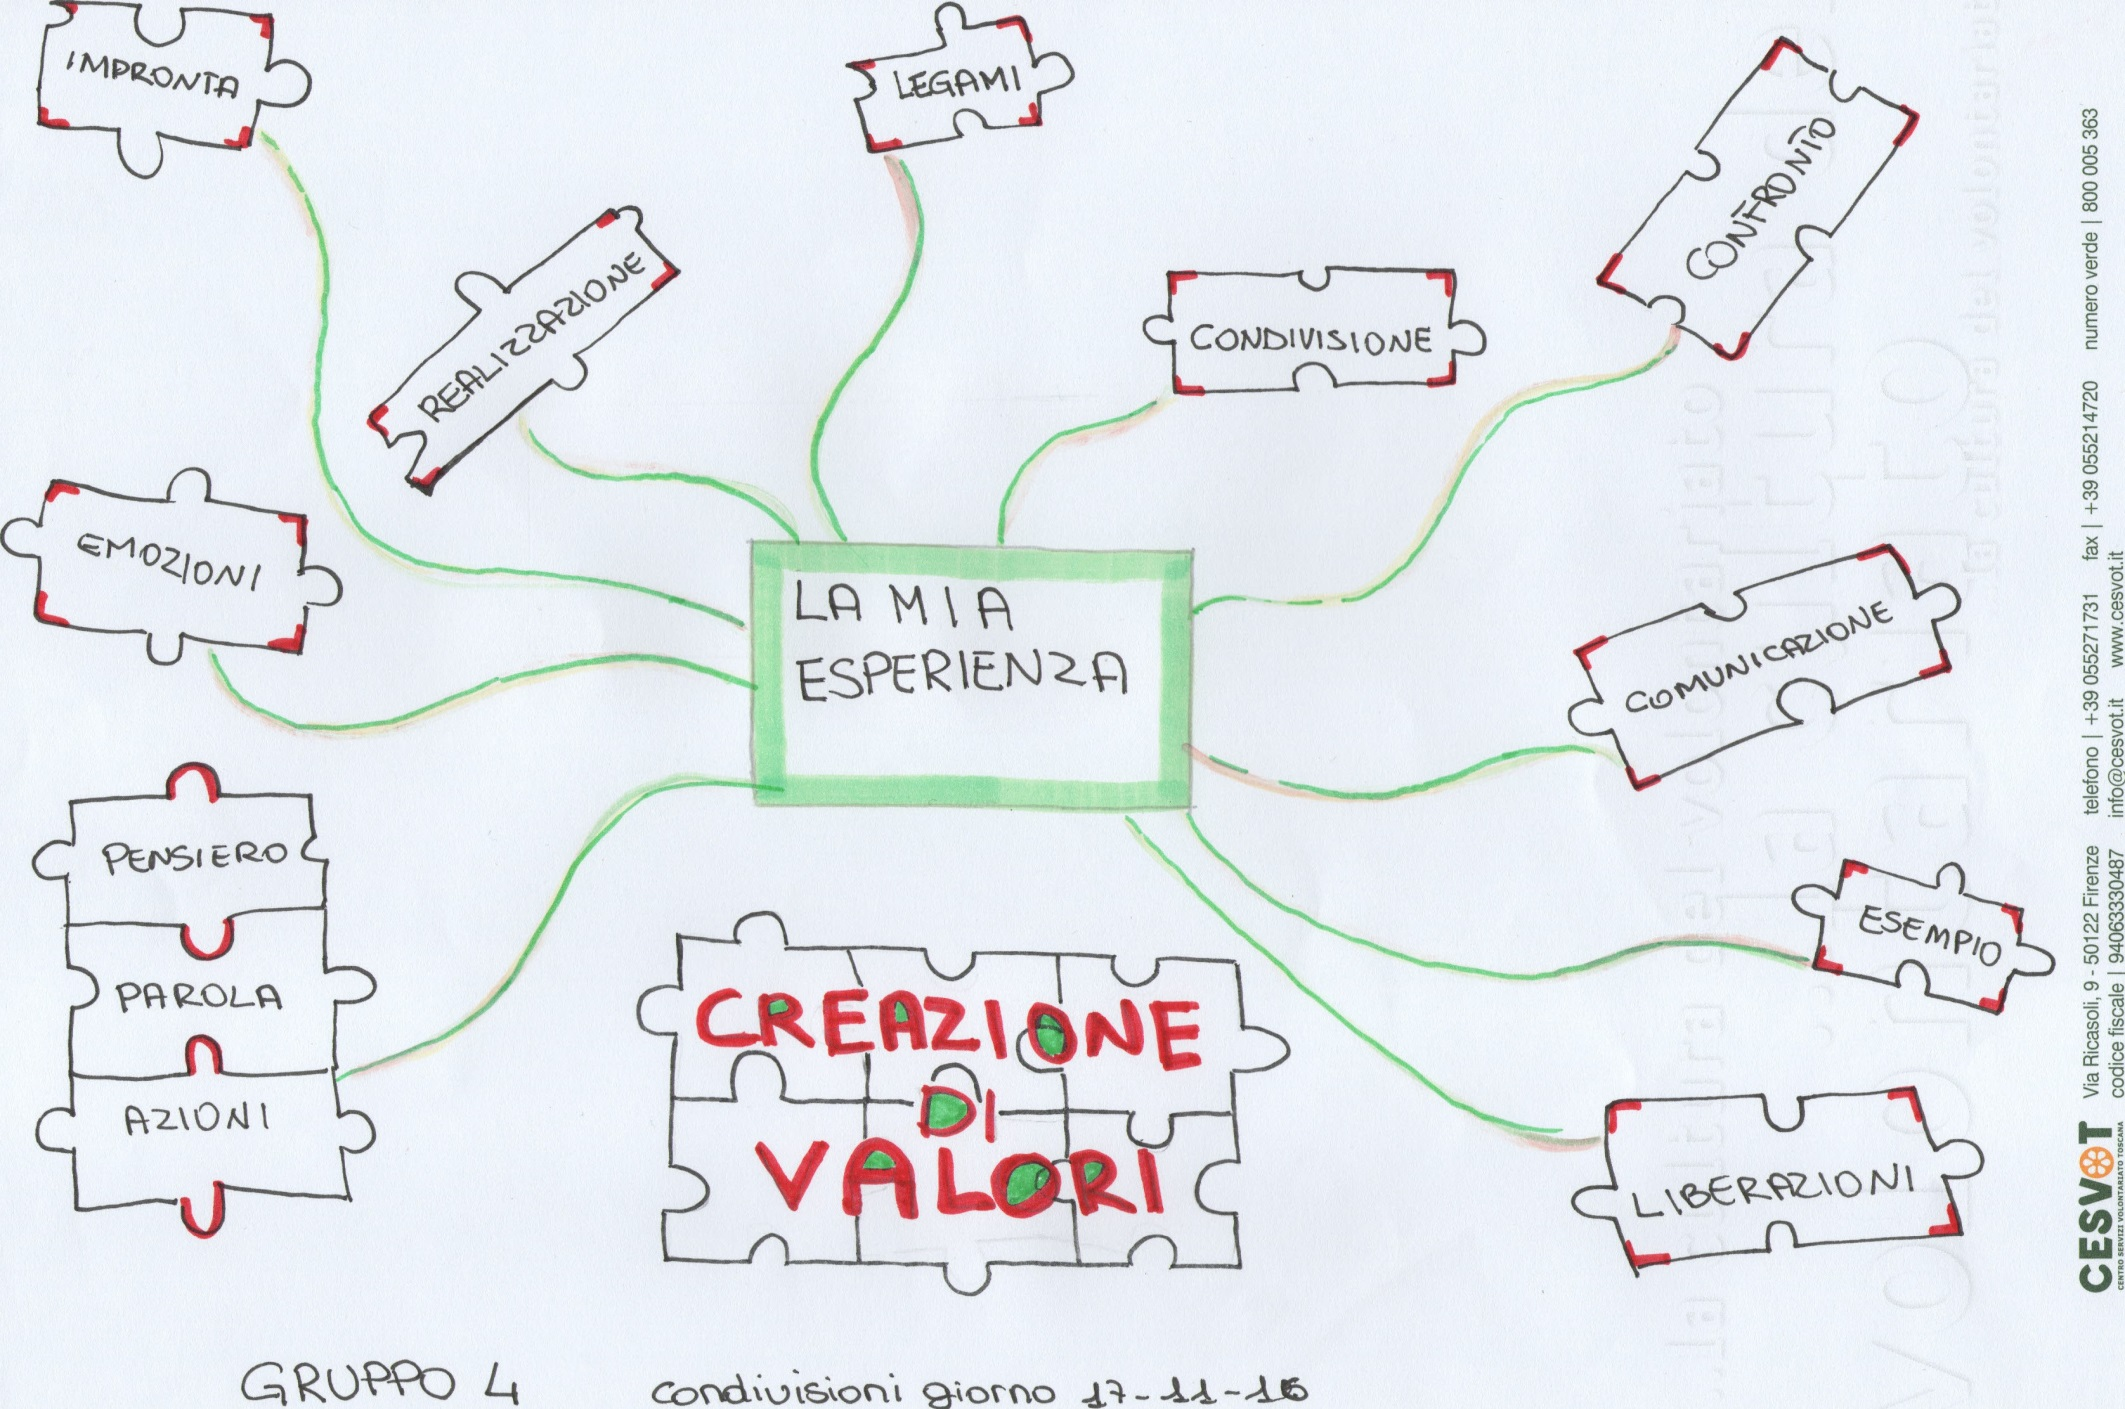 IMPRONTA
LEGAMI
CONFRONTO
REALIZZAZIONE
CONDIVISIONE
EMOZIONI
LA MIA
ESPERIENZA
COMUNICAZIONE
PENSIERO
PAROLA
AZIONI
ESEMPIO
CREAZIONE
DI
VALORI
LIBERAZIONI
GRUPPO 4
condivisioni giorno 17-11-16
CESVOT
CENTRO SERVIZI VOLONTARIATO TOSCANA
Via Ricasoli, 9 - 50122 Firenze telefono | +39 055271731 fax | +39 055214720 numero verde | 800 005 363
codice fiscale | 94063330487 info@cesvot.it www.cesvot.it